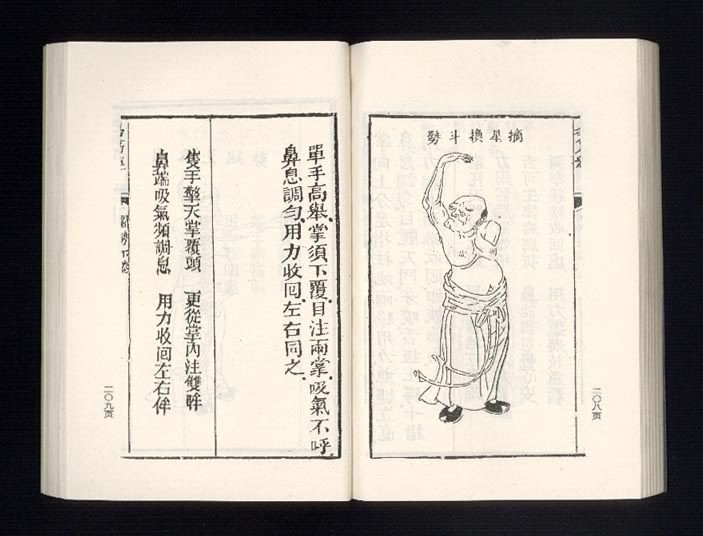 摘星換斗勢
二〇八页
單手高舉掌須下覆目注兩掌吸氣不呼
鼻息調勻用力收囘左右同之
隻手擎天掌覆頭 更從掌內注雙眸
鼻端吸氣頻調息 用力收囘左右侔
二〇九页